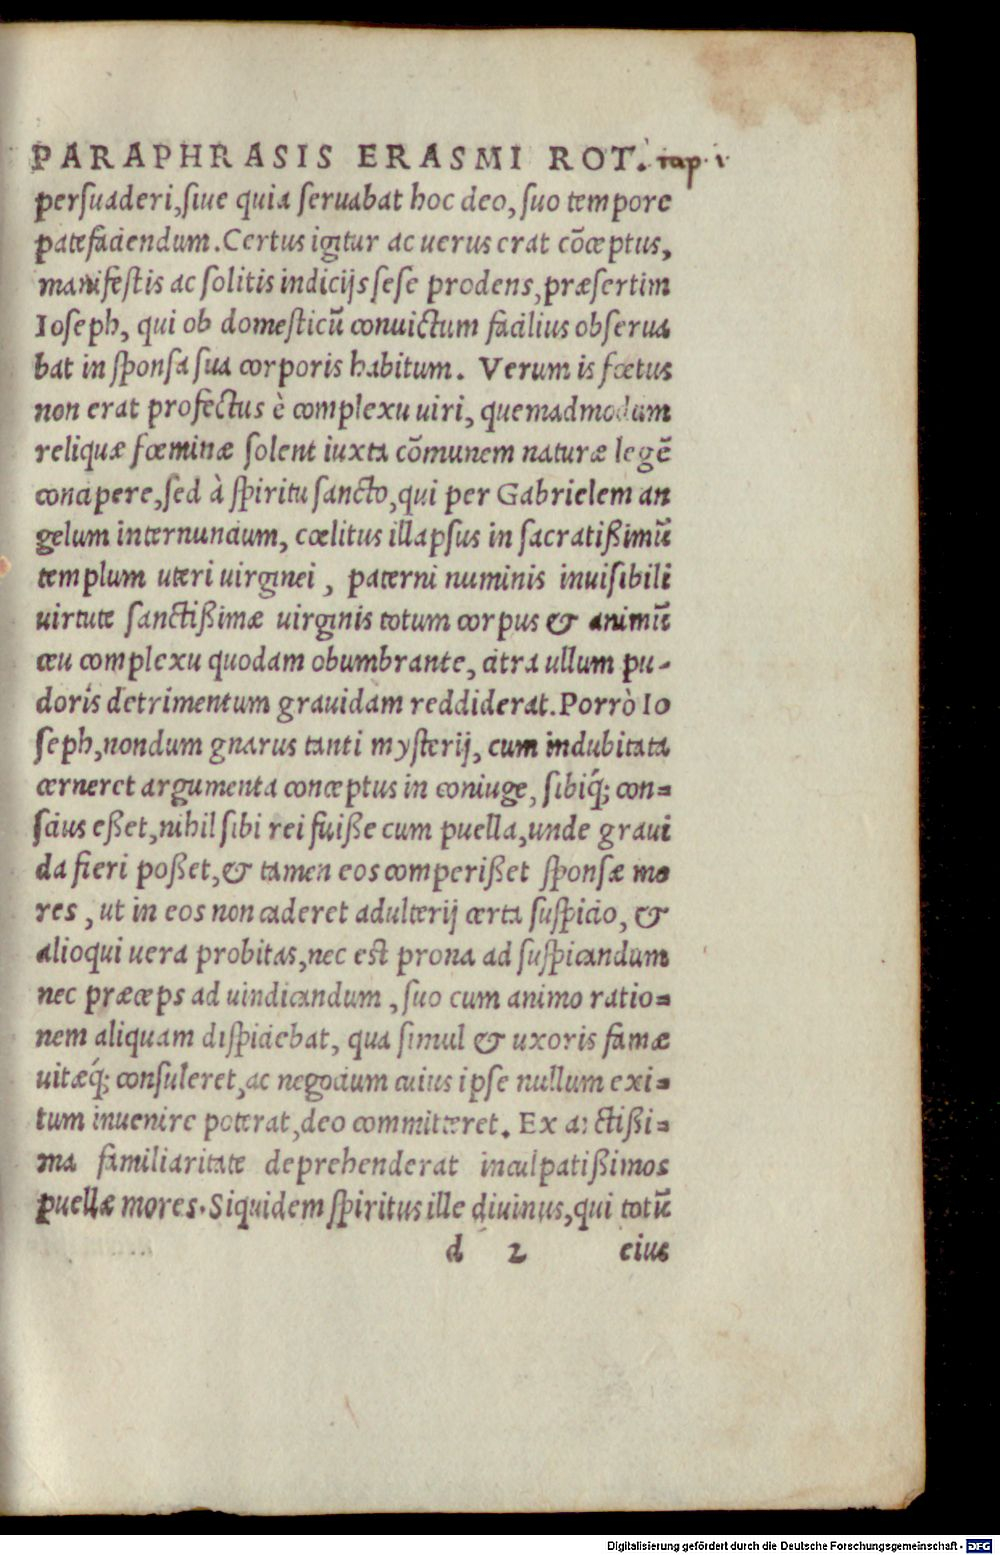 PARAPHRASIS ERASMI ROT. cap. i
persuaderi, siue quia seruabat hoc deo, suo tempore
patefaciendum. Certus igitur ac uerus erat cōceptus,
manifestis ac solitis indicijs sese prodens, præsertim
Ioseph, qui ob domesticū conuictum facilius obserua
bat in sponsa sua corporis habitum. Verum is fœtus
non erat profectus è complexu uiri, quemadmodum
reliquæ fœminæ solent iuxta cōmunem naturæ legē
concipere, sed à spiritu sancto, qui per Gabrielem an
gelum internuncium, cœlitus illapsus in sacratißimū
templum uteri uirginei, paterni numinis inuisibili
uirtute sanctißimæ uirginis totum corpus & animū
ceu complexu quodam obumbrante, citra ullum pu-
doris detrimentum grauidam reddiderat. Porrò Io
seph, nondum gnarus tanti mysterij, cum indubitata
cerneret argumenta conceptus in coniuge, sibiq́; con=
scius eßet, nihil sibi rei fuiße cum puella, unde graui
da fieri poßet, & tamen eos comperißet sponsæ mo
res, ut in eos non caderet adulterij certa suspicio, &
alioqui uera probitas, nec est prona ad suspicandum
nec præceps ad uindicandum, suo cum animo ratio=
nem aliquam dispiciebat, qua simul & uxoris famæ
uitæq́; consuleret, ac negocium cuius ipse nullum exi=
tum inuenire poterat, deo committeret. Ex arctißi=
ma familiaritate deprehenderat inculpatißimos
puellæ mores. Siquidem spiritus ille diuinus, qui totū
d 2 eius
Digitalisierung gefördert durch die Deutsche Forschungsgemeinschaft - DFG